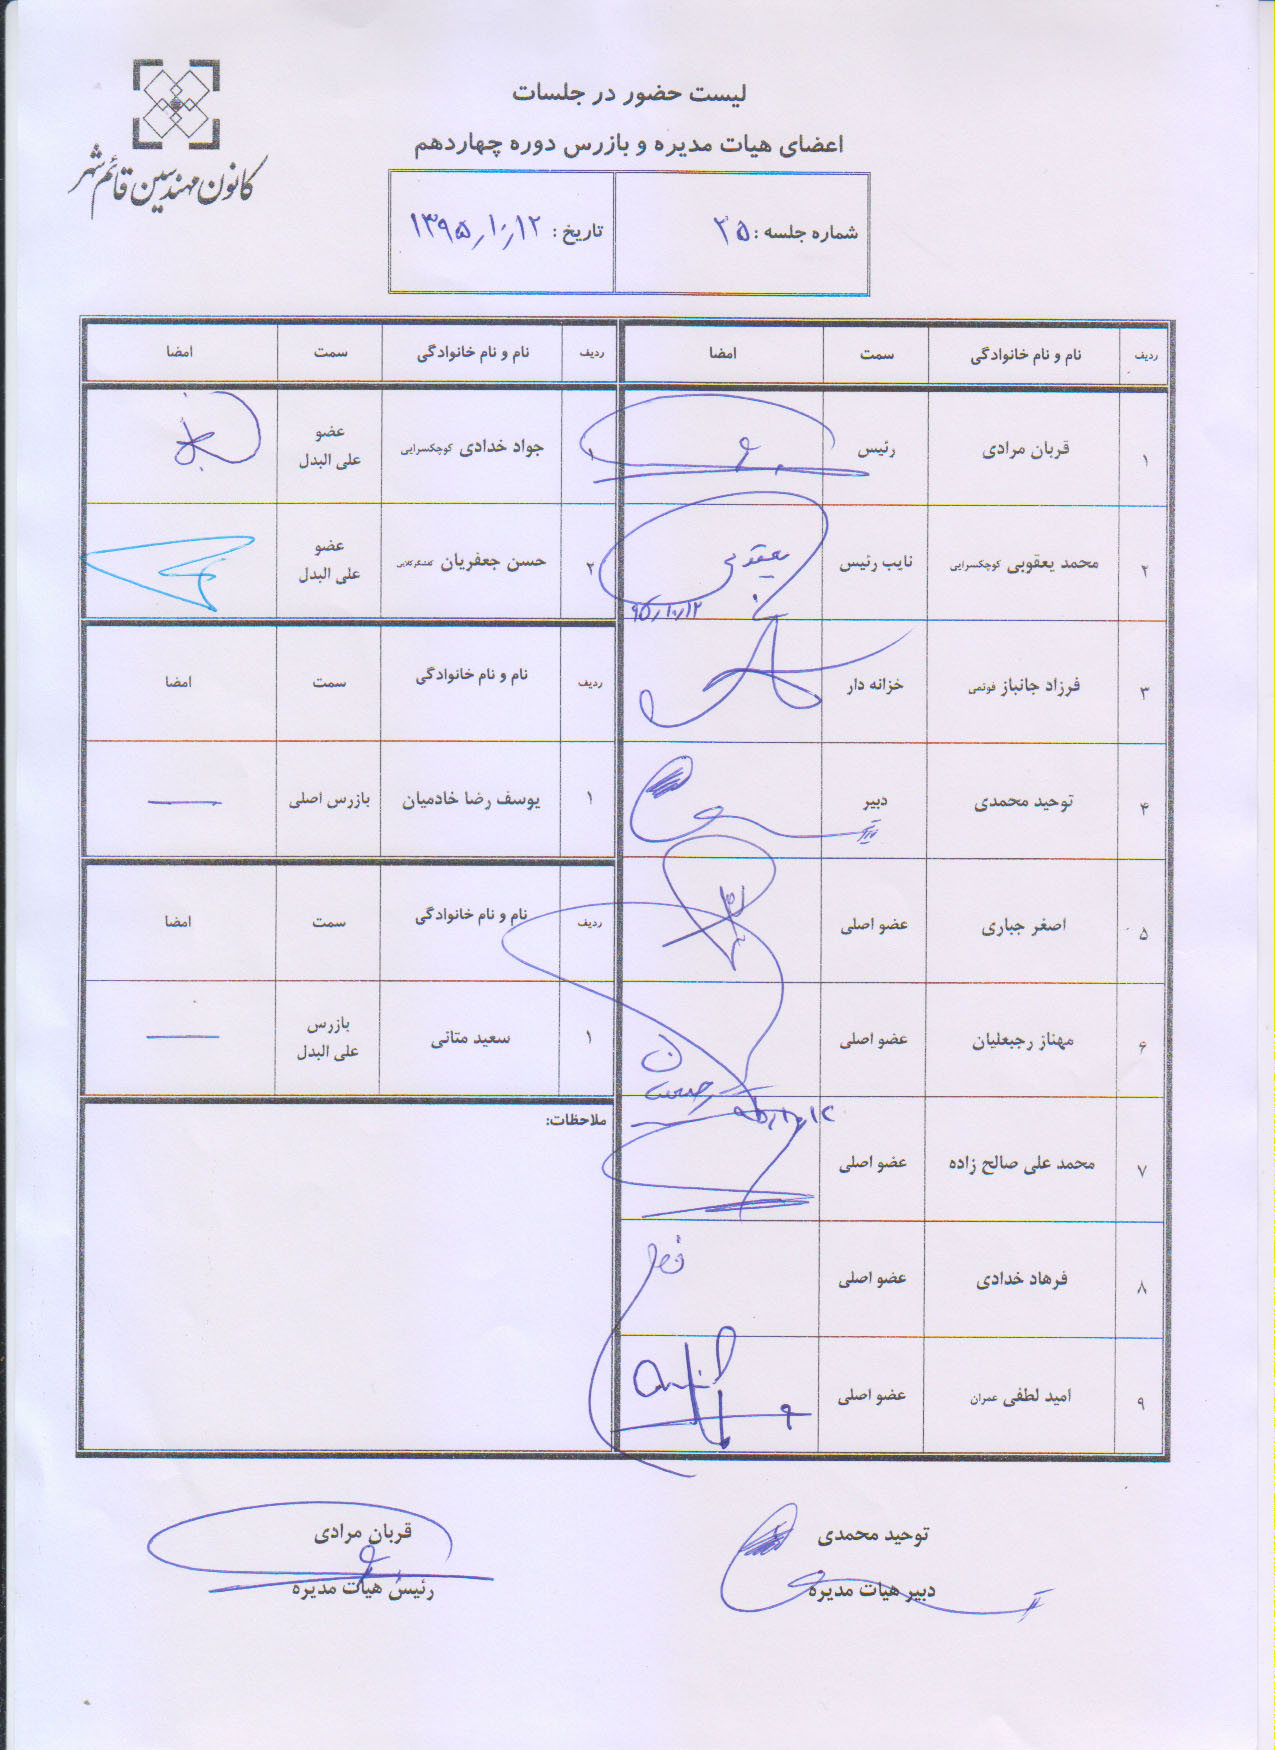 کانون مهندسین قائم شهر
لیست حضور در جلسات
اعضای هیات مدیره و بازرس دوره چهاردهم
شماره جلسه : ۳۵
تاریخ : ۱۳۹۵/۱۰/۱۲
ردیف نام و نام خانوادگی سمت امضا
۱ قربان مرادی رئیس
۲ محمد یعقوبی کوچکسرایی نایب رئیس یعقوبی
۹۵/۱۰/۱۲
۳ فرزاد جانباز فوتمی خزانه دار
۴ توحید محمدی دبیر
۵ اصغر جباری عضو اصلی
۶ مهناز رجبعلیان عضو اصلی
۷ محمد علی صالح زاده عضو اصلی
۸ فرهاد خدادی عضو اصلی
۹ امید لطفی عمران عضو اصلی
ردیف نام و نام خانوادگی سمت امضا
۱ جواد خدادی کوچکسرایی عضو
علی البدل
۲ حسن جعفریان کفشگرکلایی عضو
علی البدل
ردیف نام و نام خانوادگی سمت امضا
۱ یوسف رضا خادمیان بازرس اصلی
ردیف نام و نام خانوادگی سمت امضا
۱ سعید متانی بازرس
علی البدل
ملاحظات:
توحید محمدی
دبیر هیات مدیره
قربان مرادی
رئیس هیات مدیره